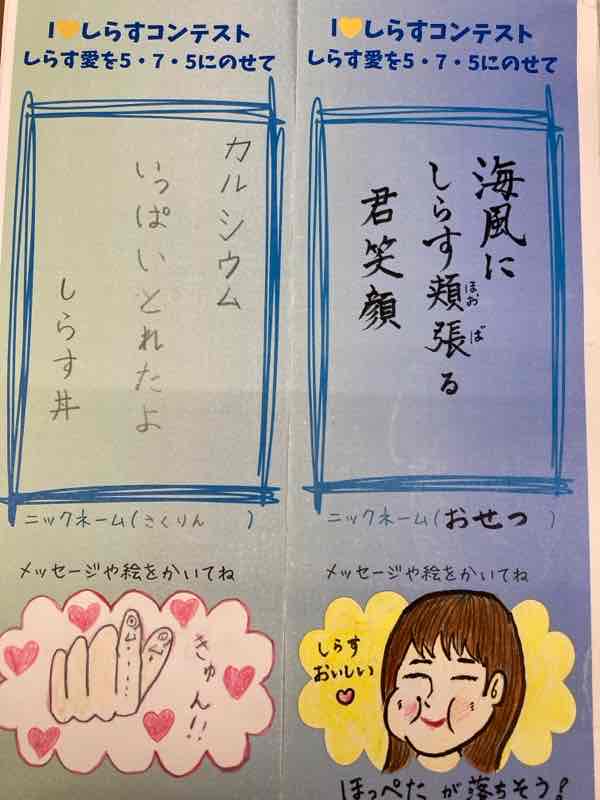 I💛しらすコンテスト
しらす愛を5・7・5にのせて
カルシウム
いっぱいとれたよ
しらす丼
ニックネーム(さくりん)
メッセージや絵をかいてね
きゅん!!
I💛しらすコンテスト
しらす愛を5・7・5にのせて
海風に
しらす頬張る
ほお ば
君笑顔
ニックネーム(おせつ)
メッセージや絵をかいてね
しらす
おいしい
ほっぺたが落ちそう!